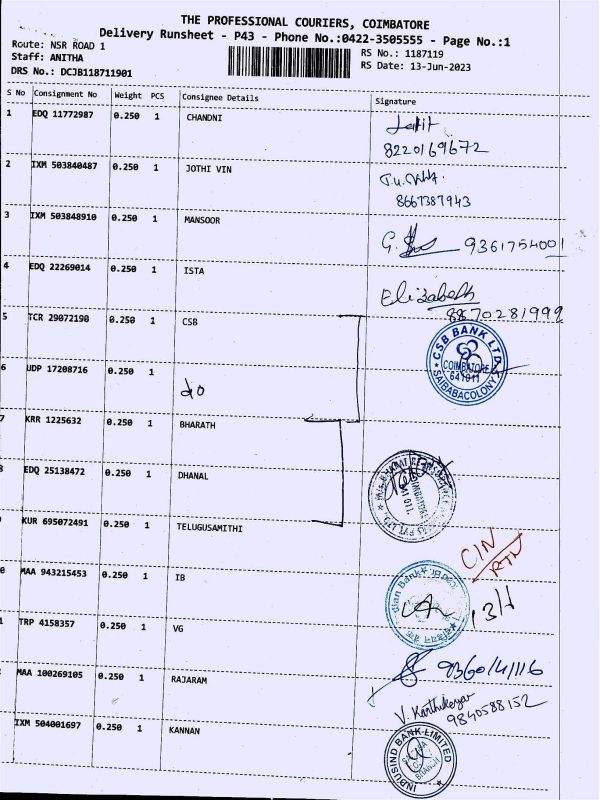 THE PROFESSIONAL COURIERS, COIMBATORE
Delivery Runsheet - P43 - Phone No.:0422-3505555 - Page No.:1
Route: NSR ROAD 1
RS No.: 1187119
Staff: ANITHA
RS Date: 13-Jun-2023
DRS No.: DCJB118711901
S No Consignment No Weight PCS Consignee Details Signature
1 EDQ 11772987 0.250 1 CHANDNI Lalit
8220169672
2 IXM 503840487 0.250 1 JOTHI VIN
8667387943
3 IXM 503848910 0.250 1 MANSOOR 9361754001
4 EDQ 22269014 0.250 1 ISTA Elizabeth
8870281999
5 TCR 29072190 0.250 1 CSB
CSB BANK LTD
COIMBATORE
641011
SAIBABACOLONY
6 UDP 17208716 0.250 1
do
7 KRR 1225632 0.250 1 BHARATH
8 EDQ 25138472 0.250 1 DHANAL
COIMBATORE
KUR 695072491 0.250 1 TELUGUSAMITHI
C/N
RTN
0 MAA 943215453 0.250 1 IB
Indian Bank
13/1
1 TRP 4158357 0.250 1 VG
MAA 100269105 0.250 1 RAJARAM
V. Karthikeyan
9840588152
IXM 504001697 0.250 1 KANNAN
INDUSIND BANK LIMITED
BRANCH